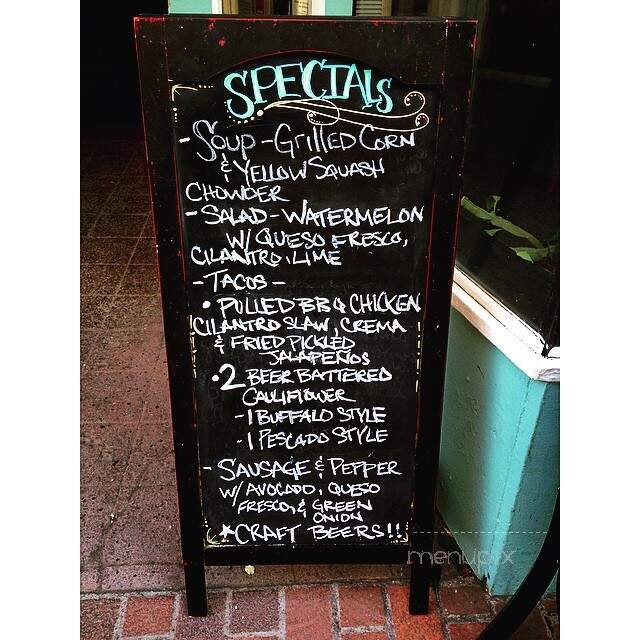 SPECIALS
- SOUP - GRILLED CORN
& YELLOW SQUASH
CHOWDER
- SALAD - WATERMELON
W/ QUESO FRESCO,
CILANTRO, LIME
- TACOS -
• PULLED BBQ CHICKEN
CILANTRO SLAW, CREMA
& FRIED PICKLED
JALAPEÑOS
• 2 BEER BATTERED
CAULIFLOWER
- 1 BUFFALO STYLE
- 1 PESCADO STYLE
- SAUSAGE & PEPPER
W/ AVOCADO, QUESO
FRESCO, & GREEN
ONION
★ CRAFT BEERS!!
menupix